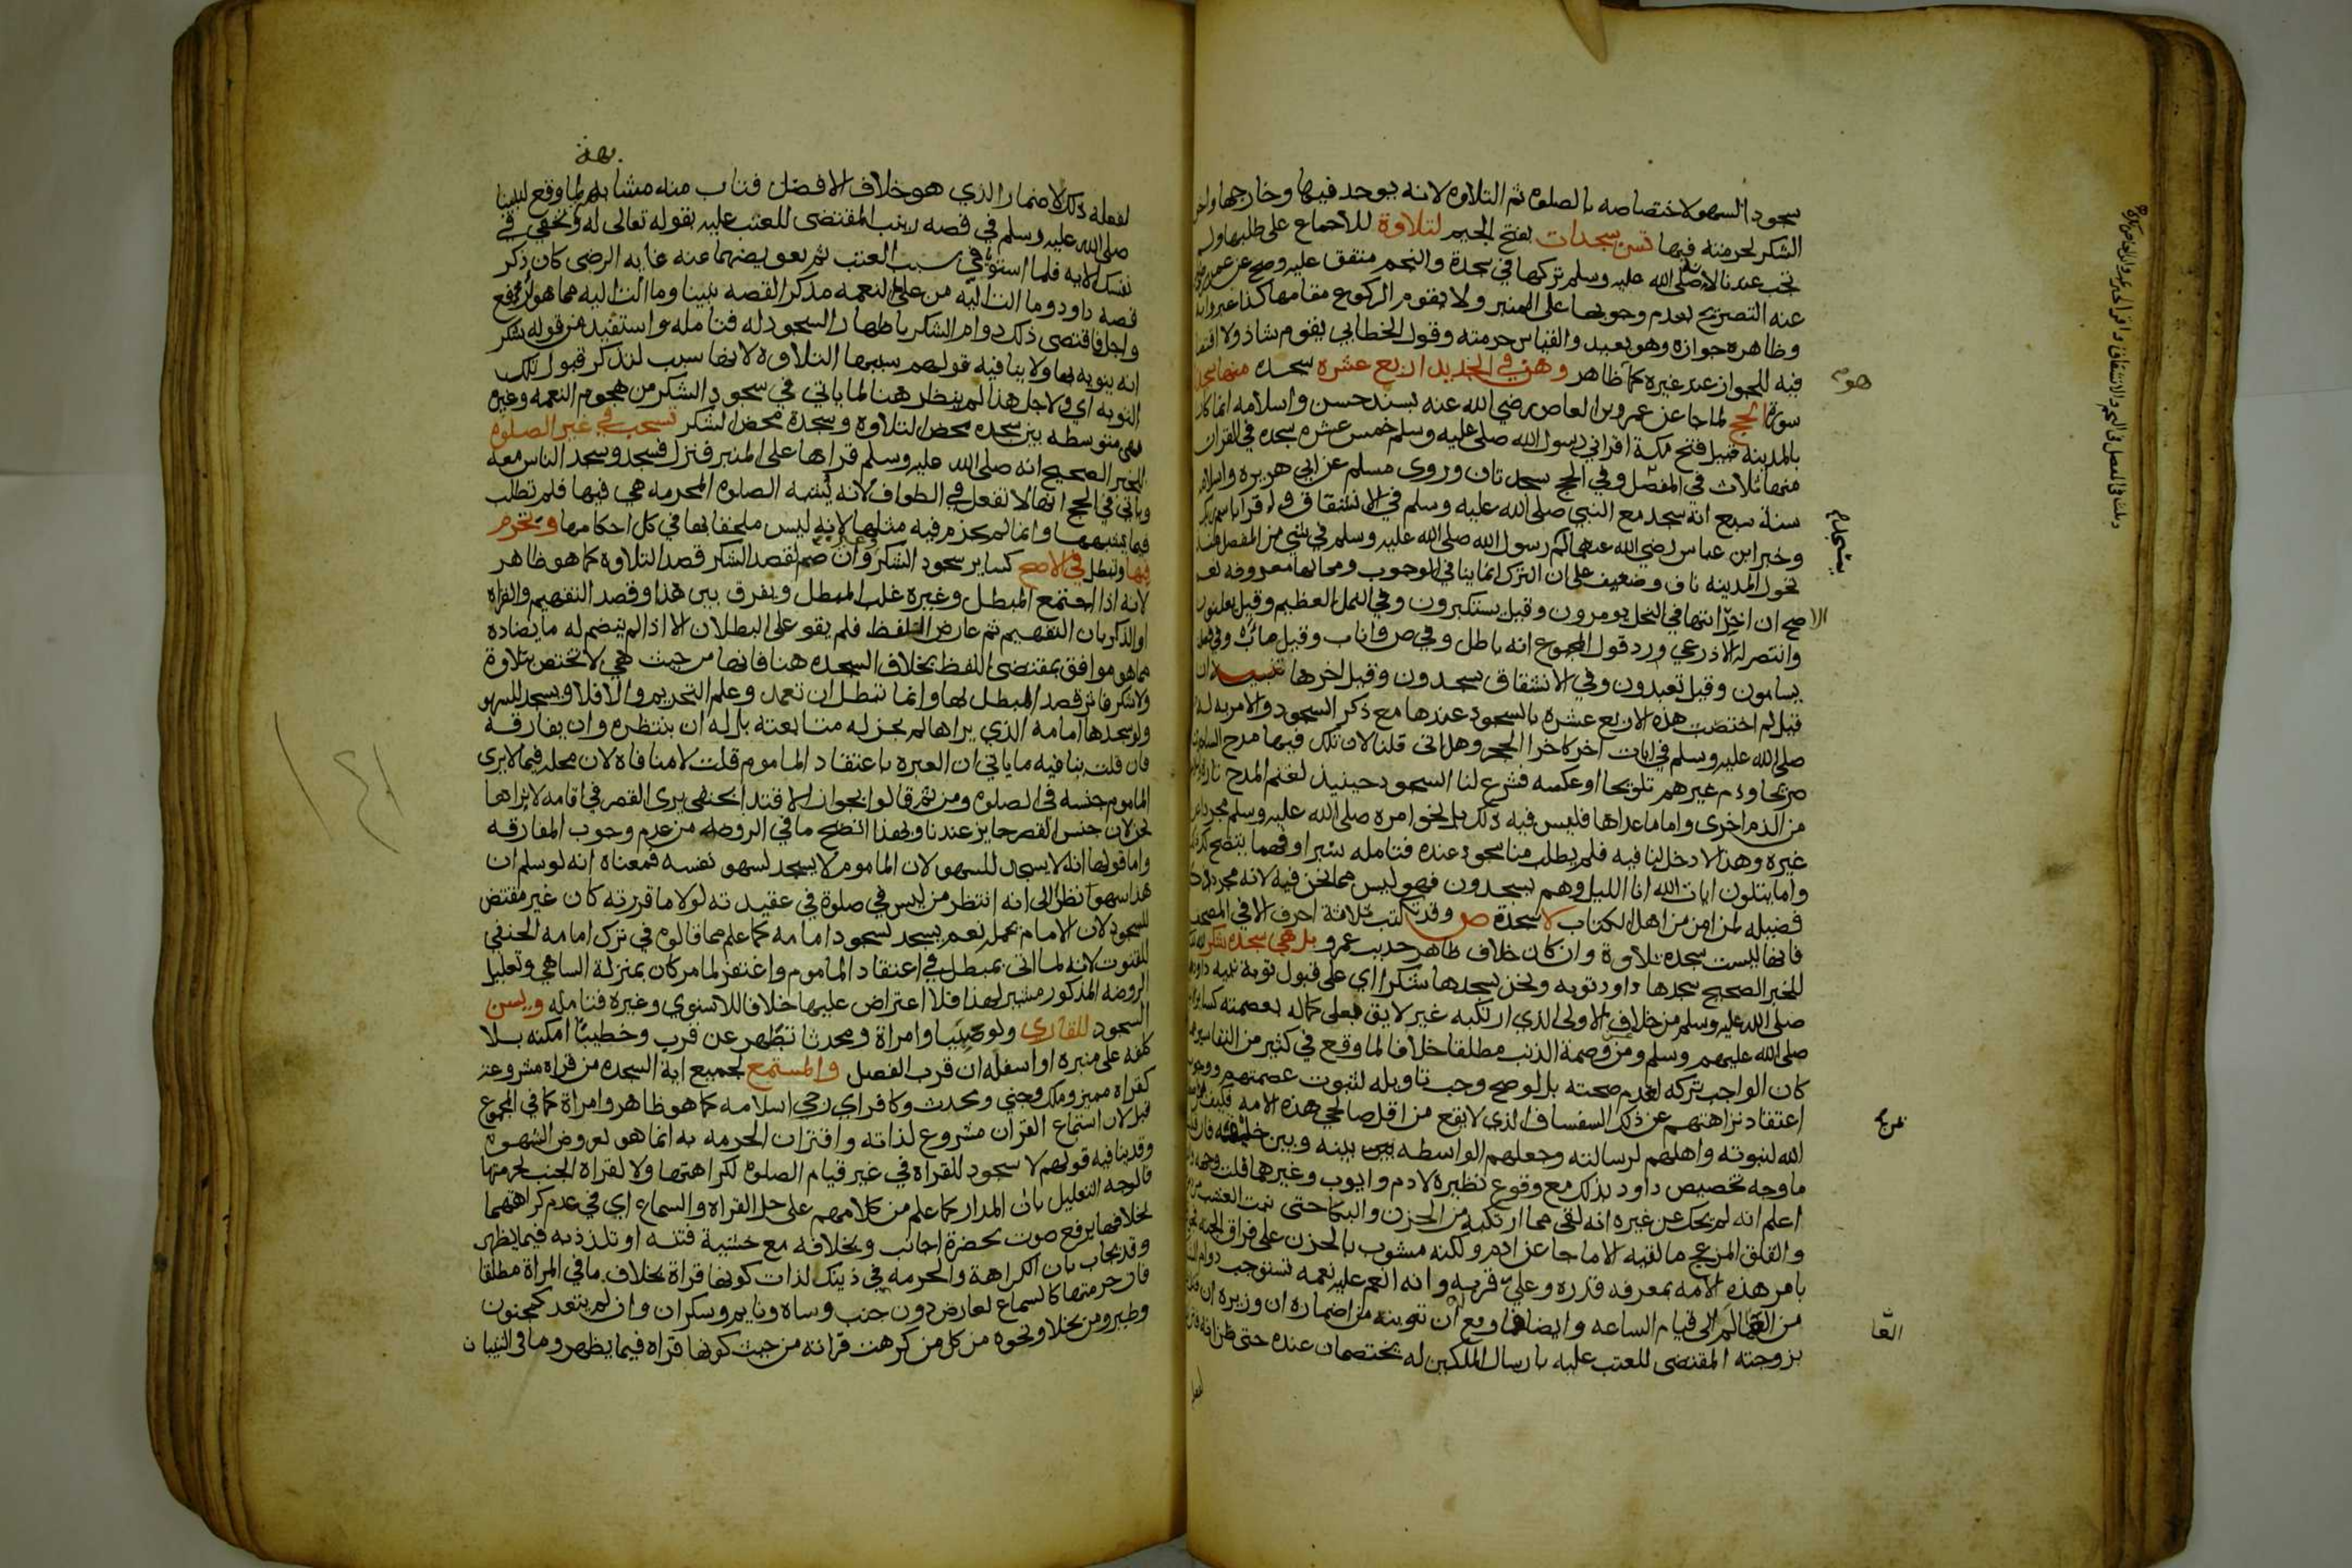 سجود السهو لاختصاصه بالصلوه ثم التلاوه لانه يوجد فيها وخارجها واخر
الشكر لحرمته فيها تسن سجدات بفتح الجيم لتلاوة للاجماع على طلبها ولم
تجب عندنا لانه صلى الله عليه وسلم تركها في سجدة والنجم متفق عليه وصح عن عمر
عنه التصريح بعدم وجوبها على المنبر ولا يقوم الركوع مقامها كذا عبروا به
وظاهره جوازه وهو بعيد والقياس حرمته وقول الخطابي يقوم شاذ ولا اقتضا
فيه للجواز عند غيره كما ظاهر وهن في الجديد اربع عشره سجده منها سجدتا
سورة الحج لما جا عن عمرو بن العاص رضي الله عنه بسند حسن واسلامه انما كان
بالمدينه قبل فتح مكة اقراني رسول الله صلى عليه وسلم خمس عشره سجده في القران
منها ثلاث في المفصل وفي الحج سجدتان وروى مسلم عن ابي هريره واسلامه
سنة سبع انه سجد مع النبي صلى الله عليه وسلم في الانشقاق وفي اقرا باسم ربك
وخبر ابن عباس رضي الله عنهما لم رسول الله صلى الله عليه وسلم في شي من المفصل منذ
تحول المدينه ناف وضعيف على ان الترك انما ينافي الوجوب ومحالها معروفه نعم
الاصح ان اخر ايتها في النحل يومرون وقيل يستكبرون وفي النمل العظيم وقيل يعلنون
وانتصر له الاذرعي ورد قول المجموع انه باطل وفي ص واناب وقيل مآب وفي فصلت
يسامون وقيل تعبدون وفي الانشقاق يسجدون وقيل اخرها تنبيه ان
قيل لم اختصت هذه الاربع عشره بالسجود عندها مع ذكر السجود والامر به له
صلى الله عليه وسلم في ايات اخر كاخر الحجر وهل اتى قلنا لان تلك فيها مدح الساجدين
صريحا وذم غيرهم تلويحا او عكسه فشرع لنا السجود حينيذ لغنم المدح تارة
من الذم اخرى واما ما عداها فليس فيه ذلك بل نحو امره صلى الله عليه وسلم مجردا عن
غيره وهذا لا دخل لنا فيه فلم يطلب منا سجود عنده فتامله سبرا وفهما يتضح لك
واما يتلون ايات الله انا الليل وهم يسجدون فهو ليس مما نحن فيه لانه مجرد ذكر
فضيله لمن امن من اهل الكتاب لا سجدة ص وقد تكتب ثلاثة احرف الا في المصحف
فانها ليست سجدة تلاوة وان كان خلاف ظاهر حديث عمرو بل هي سجده شكر لله
للخبر الصحيح سجدها داود توبه ونحن نسجدها شكرا اي على قبول توبة نبيه داود
صلى الله عليه وسلم من خلاف الاولى الذي ارتكبه غير لايق بعلى كماله بعصمته كساير
صلى الله عليهم وسلم ومن وصمة الذنب مطلقا خلافا لما وقع في كثير من التفاسير
كان الواجب تركه لعدم صحته بل لو صح وجب تاويله لثبوت عصمتهم ووجوب
اعتقاد نزاهتهم عن ذلك السفساف الذي لا يقع من اقل صالحي هذه الامه فكيف
الله لنبوته واهلهم لرسالته وجعلهم الواسطه بينه وبين خليقته فان
ما وجه تخصيص داود بذلك مع وقوع نظيره لادم وايوب وغيرهما قلت وجهه
اعلم انه لم يحك عن غيره انه لقي مما ارتكبه من الحزن والبكا حتى نبت العشب
والقلق المزعج ما لقيه الا ما جا عن ادم ولكنه مشوب بالحزن على فراق الجنه
بامر هذه الامه بمعرفه قدره وعلي قربه وانه انعم عليه نعمه تستوجب دوام
من العالم الى قيام الساعه وايضا فما وقع له ان توبته من اضماره ان وزيره ان
بزوجته المقتضى للعتب عليه بارسال الملكين له يختصمان عنده حتى ظن انه
هو
الاصح
العا
بهذ
لفعله ذلك الاضمار الذي هو خلاف الافضل فتاب منه مشابه لما وقع لنبينا
صلى الله عليه وسلم في قصه زينب المقتضى للعتب عليه بقوله تعالى له وتخفي في
نفسك الايه فلما استويا في سبب العتب ثم تعويضهما عنه غايه الرضى كان ذكر
قصه داود وما الت اليه من علي النعمه مذكرا لقصه نبينا وما الت اليه مما هو ارفع
واجل فاقتضى ذلك دوام الشكر باظهار السجود له فتامله واستفيد من قوله شكر
انه ينويه بها ولا ينافيه قولهم سببها التلاوة لانها سبب لتذكر قبول تلك
التوبه اي ولاجل هذا لم ينظر هنا لما ياتي في سجود الشكر من هجوم النعمه وغيره
فهي متوسطه بين سجده محض التلاوة وسجدة محض الشكر تستحب في غير الصلوة
للخبر الصحيح انه صلى الله عليه وسلم قراها على المنبر فنزل فسجد وسجد الناس معه
وياتي في الحج انها لا تفعل في الطواف لانه يشبه الصلوه المحرمه هي فيها فلم تطلب
فيما يشبهها وانما لم تحرم فيه مثلها لانه ليس ملحقا بها في كل احكامها وتحرم
فيها وتبطل في الاصح كساير سجود الشكر وان ضم لقصد الشكر قصد التلاوة كما هو ظاهر
لانه اذا اجتمع المبطل وغيره غلب المبطل ويفرق بين هذا وقصد التفهيم والقراه
او الذكر بان التفهيم ثم عارض اللفظ فلم يقو على البطلان الا اذا لم ينضم له ما يضاده
مما هو موافق بمقتضى اللفظ بخلاف السجده هنا فانها من حيث هي لا تختص بتلاوة
ولا شكر فاثر قصد المبطل لها وانما تبطل ان تعمد وعلم التحريم والا فلا ويسجد للسهو
ولو سجدها امامه الذي يراها لم يجز له متابعته بل له ان ينتظره وان يفارقه
فان قلت ينافيه ما ياتي ان العبره باعتقاد الماموم قلت لا منافاه لان محله فيما لا يرى
الماموم جنسه في الصلوه ومن ثم قالوا يجوز الاقتدا بحنفي يرى القصر في اقامه لا نراها
نحن لان جنس القصر جايز عندنا وبهذا اتضح ما في الروضه من عدم وجوب المفارقه
واما قولها انه لا يسجد للسهو لان الماموم لا يسجد لسهو نفسه فمعناه انه لو سلم ان
هذا سهو نظرا الى انه انتظر من ليس في صلوة في عقيدته لولا ما قررته كان غير مقتض
للسجود لان الامام يحمله نعم يسجد لسجود امامه كما علم مما قالوه في ترك امامه الحنفي
للقنوت لانه لما اتى بمبطل في اعتقاد الماموم واغتفر لما مر كان بمنزلة الساهي وتعليل
الروضه المذكور مشير لهذا فلا اعتراض عليها خلافا للاسنوي وغيره فتامله ويسن
السجود للقاري ولو صبيا وامراة ومحدثا تطهر عن قرب وخطيبا امكنه بلا
كلفه على منبره او اسفله ان قرب الفصل والمستمع لجميع اية السجده من قراه مشروعه
كقراه مميز وملك وجني ومحدث وكافر اي رجي اسلامه كما هو ظاهر وامراة كما في المجموع
قيل لان استماع القران مشروع لذاته واقتران الحرمه به انما هو لعروض الشهوه
وقد ينافيه قولهم لا سجود للقراه في غير قيام الصلوه لكراهتها ولا لقراة الجنب لحرمتها
فالوجه التعليل بان المدار كما علم من كلامهم على حل القراه والسماع اي في عدم كراهتهما
بخلافهما برفع صوت بحضرة اجانب وبخلافه مع خشية فتنه او تلذذ به فيما يظهر
وقد يجاب بان الكراهة والحرمه في ذينك لذات كونها قراة بخلاف ما في المراة مطلقا
فان حرمتها كالسماع لعارض دون جنب وساه ونايم وسكران وان لم يتعد كمجنون
وطير ومن بخلا ونحوه من كل من كرهت قراته من حيث كونها قراه فيما يظهر وما في التبيان